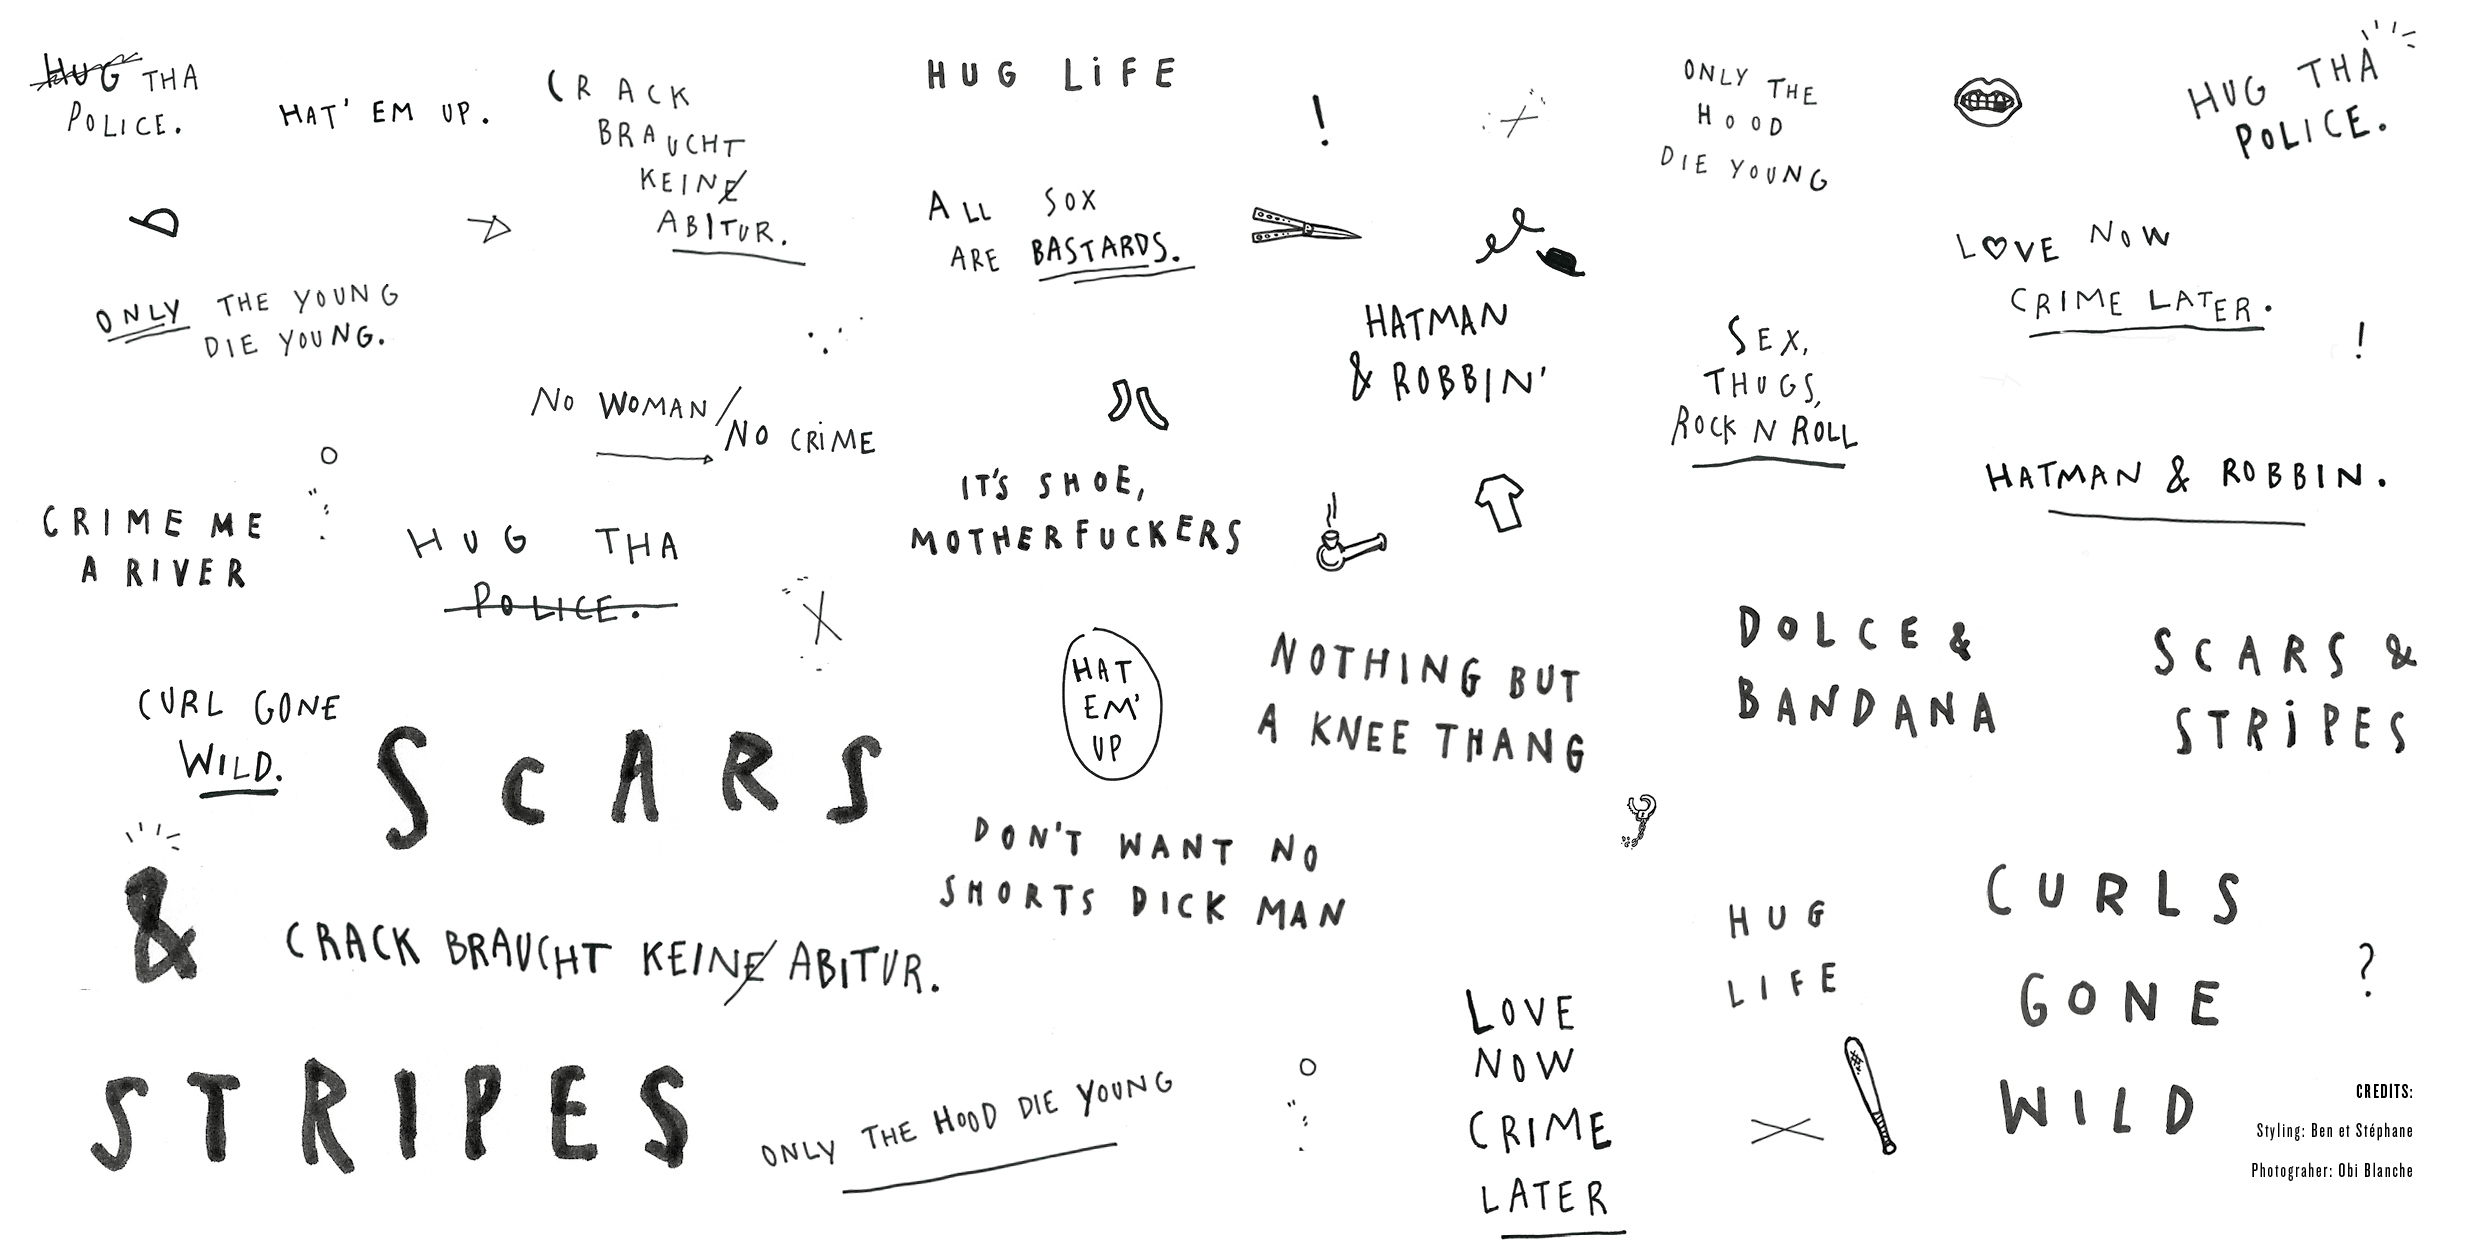 HUG THA
POLICE.
HAT' EM UP.
CRACK
BRAUCHT
KEINE
ABITUR.
HUG LiFE
!
ONLY THE
HOOD
DIE YOUNG
HUG THA
POLICE.
ALL SOX
ARE BASTARDS.
LOVE NOW
CRIME LATER.
!
ONLY THE YOUNG
DIE YOUNG.
HATMAN
& ROBBIN'
SEX,
THUGS,
ROCK N ROLL
NO WOMAN/
NO CRiME
IT'S SHOE,
MOTHERFUCKERS
HATMAN & ROBBIN.
CRIME ME
A RIVER
HUG THA
POLICE.
HAT
EM'
UP
NOTHING BUT
A KNEE THANG
DOLCE &
BANDANA
SCARS &
STRiPES
CURL GONE
WILD.
SCARS
&
STRIPES
DON'T WANT NO
SHORTS DICK MAN
CRACK BRAUCHT KEINE ABITUR.
HUG
LIFE
CURLS
GONE
WILD
?
LOVE
NOW
CRIME
LATER
ONLY THE HOOD DIE YOUNG
CREDITS:
Styling: Ben et Stéphane
Photograher: Obi Blanche